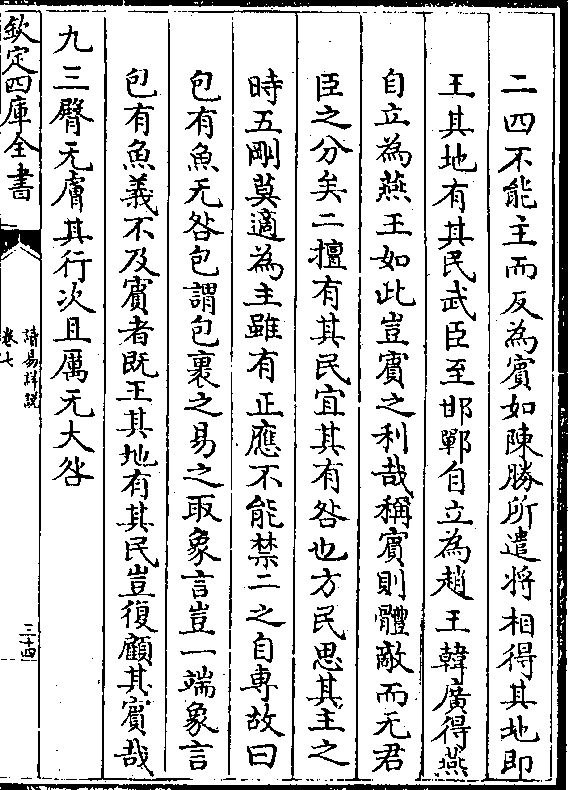 二四不能主而反為賓如陳勝所遣将相得其地即
王其地有其民武臣至邯鄲自立為趙王韓廣得燕
自立為燕王如此豈賓之利哉稱賓則體敵而无君
臣之分矣二擅有其民宜其有咎也方民思其主之
時五剛莫適為主雖有正應不能禁二之自専故曰
包有魚无咎包謂包裹之易之取象言豈一端象言
包有魚義不及賓者既王其地有其民豈復顧其賓哉
九三臀无膚其行次且厲无大咎
欽定四庫全書
讀易詳說
卷七
三十四